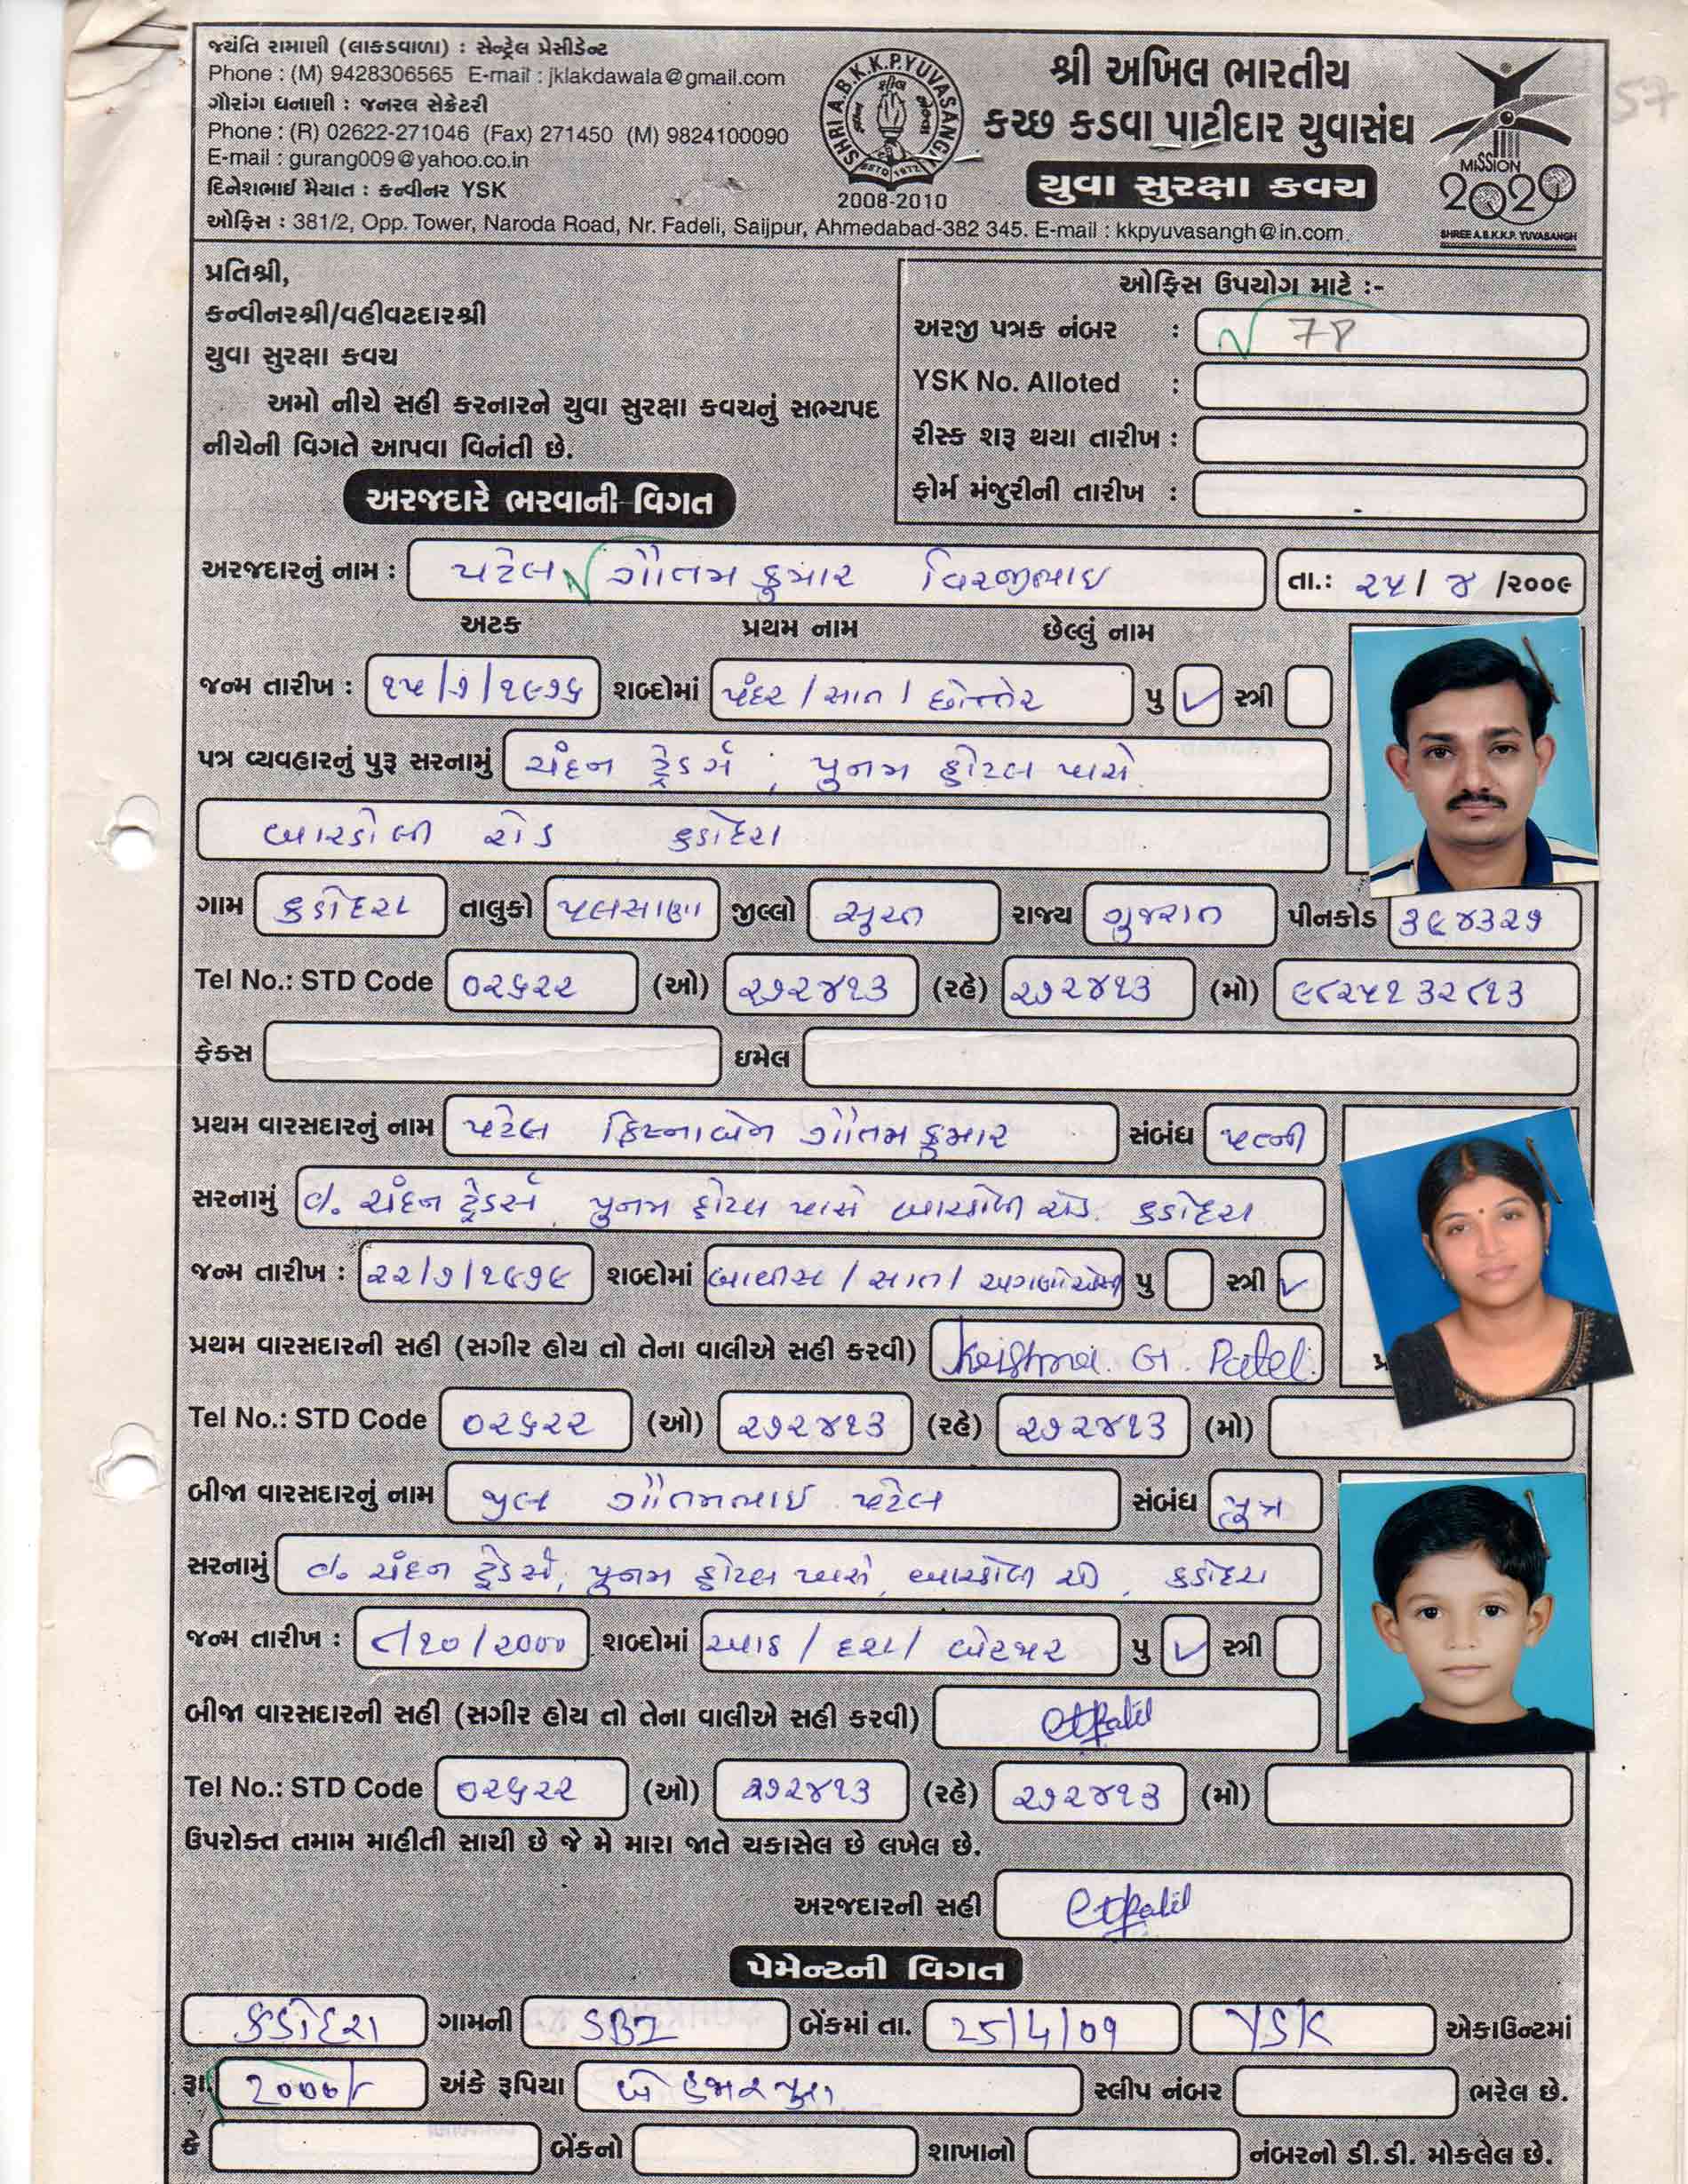 જયંતિ રામાણી (લાકડાવાળા) : સેન્ટ્રેલ પ્રેસીડેન્ટ
Phone : (M) 9428306565 E-mail : jklakdawala@gmail.com
ગૌરાંગ ધનાણી : જનરલ સેક્રેટરી
Phone : (R) 02622-271046 (Fax) 271450 (M) 9824100090
E-mail : gurang009@yahoo.co.in
દિનેશભાઈ મૈયાત : કન્વીનર YSK
ઓફિસ : 381/2, Opp. Tower, Naroda Road, Nr. Fadeli, Saijpur, Ahmedabad-382 345. E-mail : kkpyuvasangh@in.com
SHRI A.B.K.K.P. YUVASANGH
ESTD 1972
2008-2010
શ્રી અખિલ ભારતીય
કચ્છ કડવા પાટીદાર યુવાસંઘ
યુવા સુરક્ષા કવચ
MISSION
2020
SHREE A.B.K.K.P. YUVASANGH
57
પ્રતિશ્રી,
કન્વીનરશ્રી/વહીવટદારશ્રી
યુવા સુરક્ષા કવચ
અમો નીચે સહી કરનારને યુવા સુરક્ષા કવચનું સભ્યપદ
નીચેની વિગતે આપવા વિનંતી છે.
ઓફિસ ઉપયોગ માટે :-
અરજી પત્રક નંબર :
YSK No. Alloted :
રીસ્ક શરૂ થયા તારીખ :
ફોર્મ મંજુરીની તારીખ :
અરજદારે ભરવાની વિગત
અરજદારનું નામ : પટેલ ગૌતમ કુમાર વિરજીભાઇ તા.: ૨૫/ ૪ /૨૦૦૯
અટક પ્રથમ નામ છેલ્લું નામ
જન્મ તારીખ : ૧૫/૭/૧૯૭૬ શબ્દોમાં પંદર / સાત / છોન્તેર પુ ✓ સ્ત્રી
પત્ર વ્યવહારનું પુરૂ સરનામું ચંદન ટ્રેડર્સ, પુનમ હોટલ પાસે
બારડોલી રોડ કડોદરા
ગામ કડોદરા તાલુકો પલસાણા જીલ્લો સુરત રાજ્ય ગુજરાત પીનકોડ ૩૯૪૩૨૭
Tel No.: STD Code ૦૨૬૨૨ (ઓ) ૨૭૨૪૧૩ (રહે) ૨૭૨૪૧૩ (મો) ૯૮૨૫૧ ૩૨૮૧૩
ફેક્સ ઇમેલ
પ્રથમ વારસદારનું નામ પટેલ ક્રિષ્નાબેન ગૌતમ કુમાર સંબંધ પત્ની
સરનામું c/o. ચંદન ટ્રેડર્સ, પુનમ હોટલ પાસે બારડોલી રોડ. કડોદરા
જન્મ તારીખ : ૨૨/૭/૧૯૭૯ શબ્દોમાં બાવીસ / સાત / પુ સ્ત્રી ✓
પ્રથમ વારસદારની સહી (સગીર હોય તો તેના વાલીએ સહી કરવી) Krishna. G. Patel.
Tel No.: STD Code ૦૨૬૨૨ (ઓ) ૨૭૨૪૧૩ (રહે) ૨૭૨૪૧૩ (મો)
બીજા વારસદારનું નામ ગૌતમભાઇ પટેલ સંબંધ પુત્ર
સરનામું c/o. ચંદન ટ્રેડર્સ, પુનમ હોટલ પાસે, બારડોલી રોડ, કડોદરા
જન્મ તારીખ : ૮/૧૦/૨૦૦૦ શબ્દોમાં આઠ / દશ / બેહજાર પુ ✓ સ્ત્રી
બીજા વારસદારની સહી (સગીર હોય તો તેના વાલીએ સહી કરવી)
Tel No.: STD Code ૦૨૬૨૨ (ઓ) ૨૭૨૪૧૩ (રહે) ૨૭૨૪૧૩ (મો)
ઉપરોક્ત તમામ માહીતી સાચી છે જે મે મારા જાતે ચકાસેલ છે લખેલ છે.
અરજદારની સહી
પેમેન્ટની વિગત
કડોદરા ગામની SBI બેંકમાં તા. 25/4/09 YSK એકાઉન્ટમાં
રૂા 2000/- અંકે રૂપિયા બે હજાર પુરા સ્લીપ નંબર ભરેલ છે.
કે બેંકનો શાખાનો નંબરનો ડી.ડી. મોકલેલ છે.